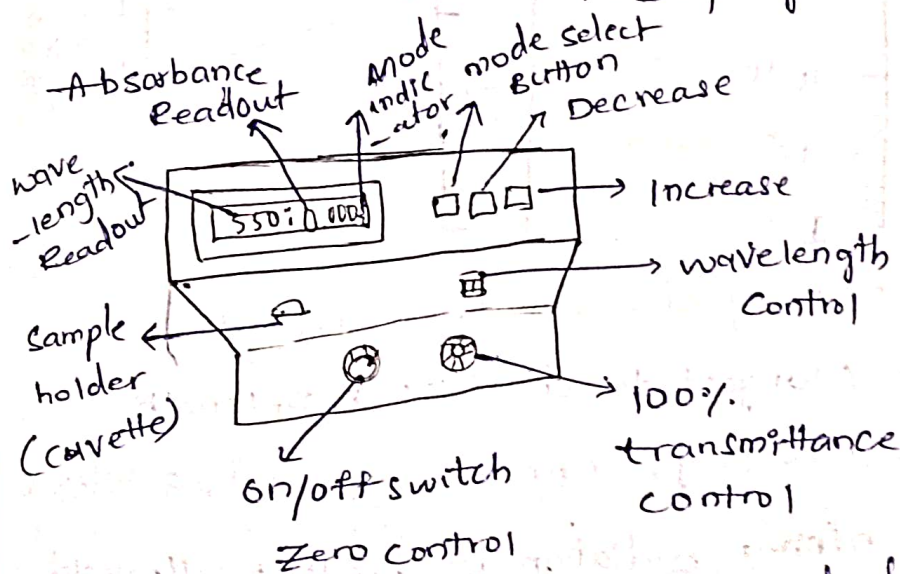 Absorbance
Readout
Mode
indic
-ator
mode select
Button
Decrease
wave
-length
Readout
550
000
Increase
wavelength
Control
Sample
holder
(cuvette)
100%.
transmittance
control
on/off switch
Zero control